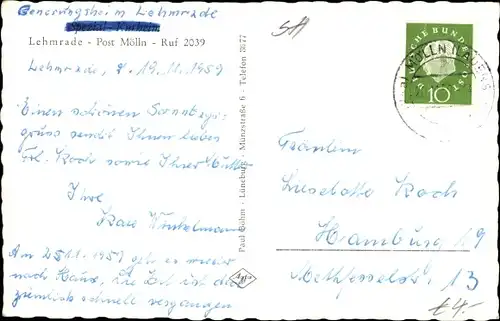 Genesungsheim Lehmrade
Spezial-Kurheim
Lehmrade - Post Mölln - Ruf 2039
Lehmrade, d. 19.11.1959
Einen schönen Sonntags-
gruss sendet Ihnen liebes
Frl. Koch sowie Ihrer Mutter
Ihre
Winkelmann
Am 25.11.1959 geht es wieder
nach Haus, die Zeit ist da
ziemlich schnell vergangen
Paul Böhm - Lüneburg - Münzstraße 6 - Telefon 3077
Agfa
DEUTSCHE BUNDESPOST
10
MÖLLN
Fräulein
Lieselotte Koch
Hamburg 19
Methfesselstr. 13
€ 4.-